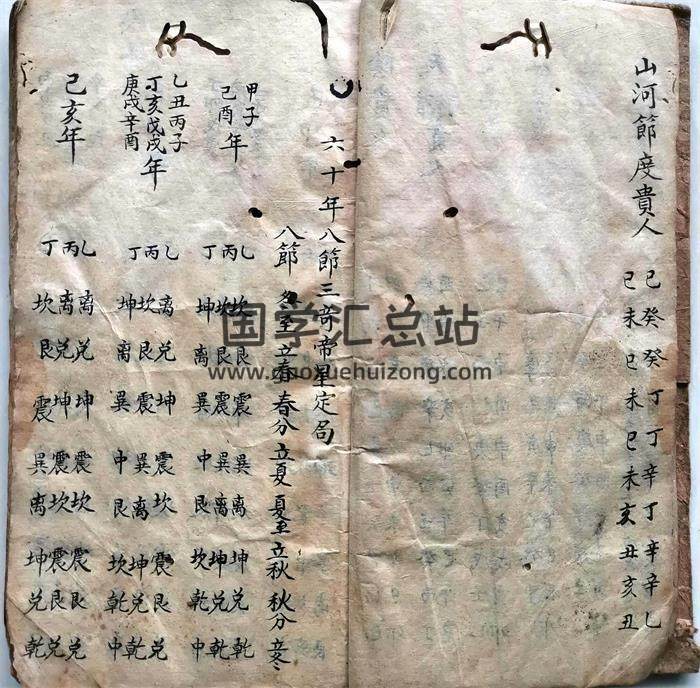 山河節度貴人
己癸癸丁丁辛丁辛辛乙
巳未巳未巳未亥丑亥丑
六十年八節三奇帝星定局
八節 冬至 立春 春分 立夏 夏至 立秋 秋分 立冬
甲子
己酉年
乙坎艮震巽离坤兑乾
丙坎艮震巽离坤兑乾
丁坤离巽中艮坎乾中
乙丑丙子
丁亥戊戌年
庚戌辛酉
乙离兑坤震坎震艮兑
丙坎艮震巽离坤兑乾
丁坤离巽中艮坎乾中
己亥年
乙离兑坤震坎震艮兑
丙离兑坤震坎震艮兑
丁坎艮震巽离坤兑乾
国学汇总站
www.guoxuehuizong.com